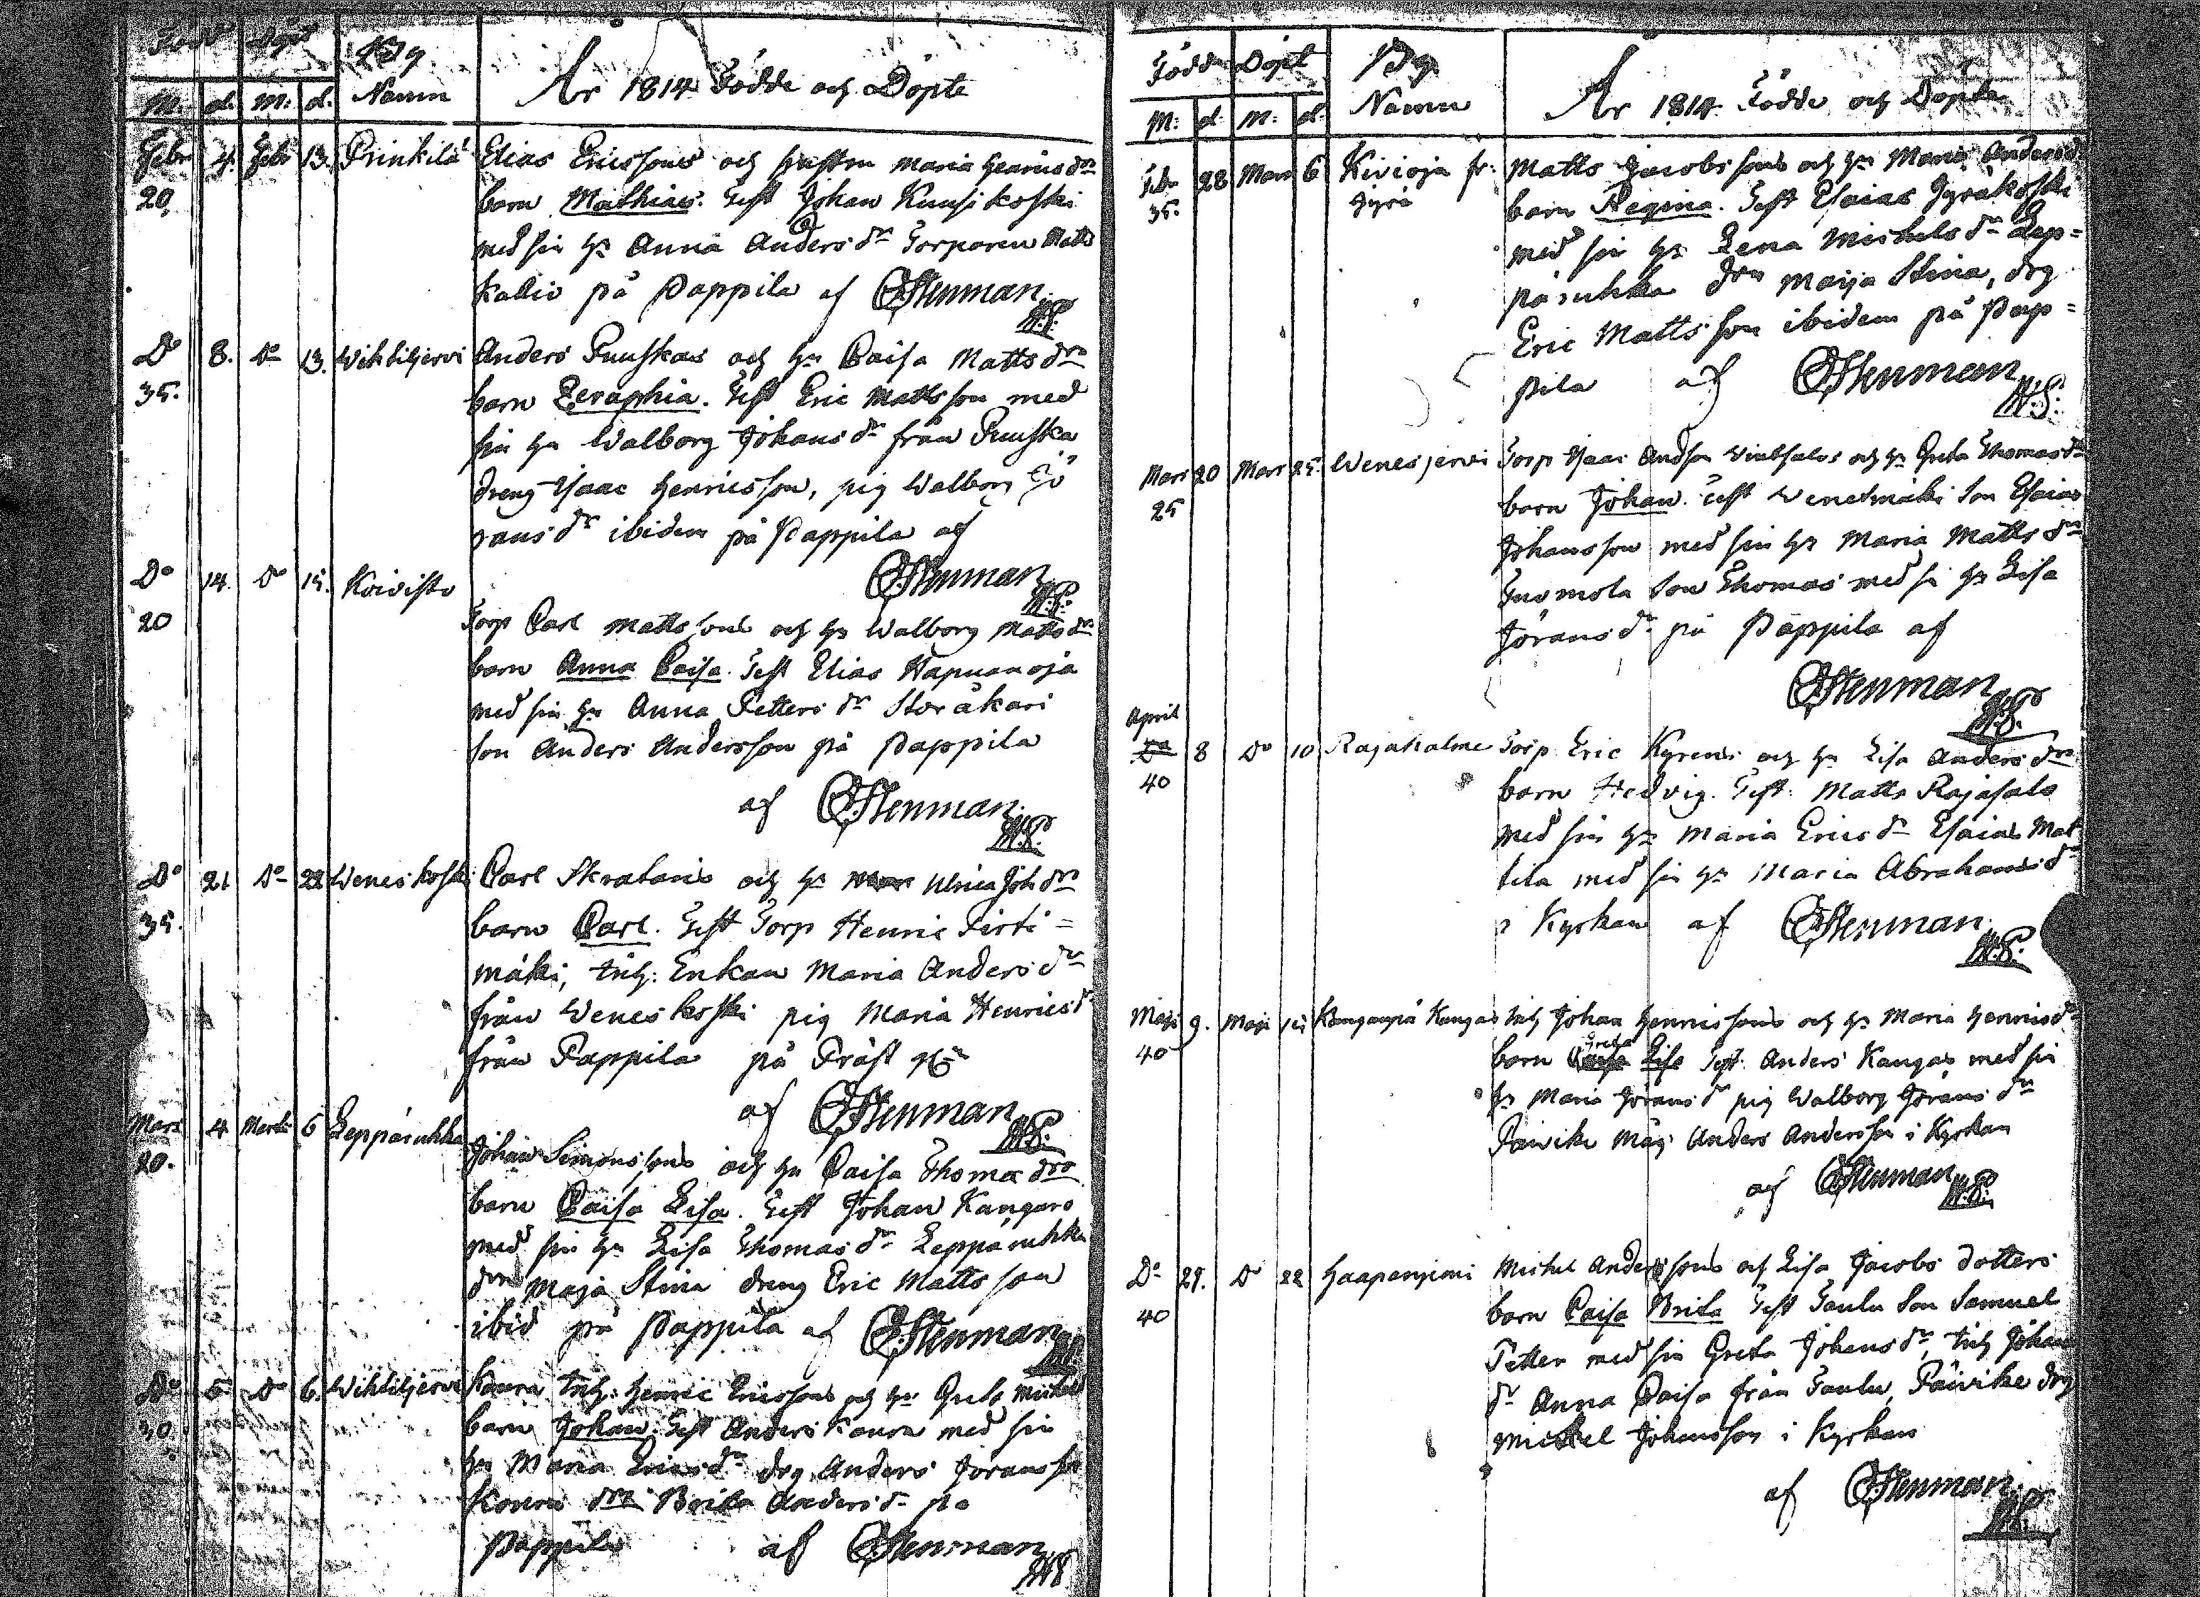 Född Döpt
Byg
År 1814 Födde och Döpte
M: d. M: d. Namn
Febr 4. Febr 13. Prinkilä
20.
Elias Ericssons och hustrun Maria Henricsdrs
barn Mathias. Test Johan Kuusikoski
med sin hu Anna Andersdr Torparen Matts
Kallio på Pappila af CJStenman
V.P.
Do 8. Do 13. Wihtiljervi
35.
Anders Puuskas och hu Caisa Mattsdrs
barn Zeraphia. Test Eric Mattsson med
sin hu Walborg Johansdr från Puuska
dreng Isaac Henricsson, pig Walborg Jö
ransdr ibidem på Pappila af
CJStenman
V.P.
Do 14. Do 15. Koivisto
20
Torp Carl Mattssons och hu Walborg Mattsdrs
barn Anna Caisa. Test Elias Hapuanoja
med sin hu Anna Pettersdr Storåkari
son Anders Andersson på Pappila
af CJStenman
V.P.
Do 21 Do 22 Weneskoski
35.
Carl Skratars och hu Ulrica Johdrs
barn Carl. Test Torp Henric Pirti=
mäki, Inh: Enkan Maria Andersdr
från Weneskoski pig Maria Henricsdr
från Pappila på Präst
af CJStenman
V.P.
Mars 4 Martii 6 Leppäruhka
20.
Johan Simonssons och hu Caisa Thomadrs
barn Caisa Lisa. Test Johan Kangars
med sin hu Lisa Thomasdr Leppäruhka
drn Maja Stina dreng Eric Mattsson
ibid på Pappila af CJStenman
V.P.
Do 5 Do 6. Wihtiljervi
30.
Koura Inh: Henric Ericssons och hu Greta Michels
barn Johan. Test Anders Koura med sin
hu Maria Ericsdr drg Anders Göransson
Koura drn Brita Andersdr på
Pappila af CJStenman
V.P.
Födde Döpt
Byg
År 1814 Födde och Döpte
M: d. M: d. Namn
Febr 28 Mars 6 Kivioja fr:
35. Jyrä
Matts Jacobssons och hu Maria Andersd
barn Regina. Test Esaias Jyräkoski
med sin hu Lena Michelsdr Lep=
päruhka drn Maija Stina, drg
Eric Mattsson ibidem på Pap=
pila af CJStenman
V.P.
Mars 20 Mars 25. Wenesjervi
25
Torp Isaac Andson Vindsalos och hu Greta Thomasdr
barn Johan. Test Wenetmäki son Esaias
Johansson med sin hu Maria Mattsdr
Tuomola son Thomas med si hu Lisa
Göransdr på Pappila af
CJStenman
V.P.
April
Do 8 Do 10 Rajahalme
40
Torp Eric Kyrens och hu Lisa Andersdrs
barn Hedvig. Test: Matts Rajasalo
med sin hu Maria Ericsdr Esaias Mat
tila med sin hu Maria Abrahamsdr
i Kyrkan af CJStenman
V.P.
Maji 9. Maji Kangas
40
Inh Johan Henricssons och hu Maria Henricsdr
Greta
barn Caisa Lisa Test. Anders Kangas med sin
hu Maria Göransdr pig Walborg Göransdr
Päivike Måg Anders Andersson i Kyrkan
af CJStenman
V.P.
Do 29. Do 22 Haapanjemi
40
Michel Anderssons och Lisa Jacobs dotters
barn Caisa Brita Test Taulu son Samuel
Petter med sin Greta Johansdr, Inh Johan
dr Anna Caisa från Taulu, Päivike drg
Mickel Johansson i Kyrkan
af CJStenman
V.P.